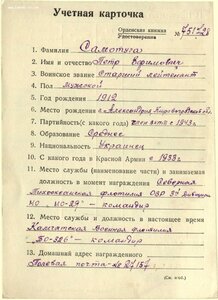 Учетная карточка
Орденская книжка
Удостоверение № 751726
1. Фамилия Самотуга
2. Имя и отчество Петр Ефимович
3. Воинское звание Старший лейтенант
4. Пол мужской
5. Год рождения 1919
6. Место рождения г. Александрия Кировоградской обл.
7. Партийность (с какого года) член ВКП(б) с 1943 г.
8. Образование Среднее
9. Национальность Украинец
10. С какого года в Красной Армии с 1938 г.
11. Место службы (наименование части) и занимаемая
должность в момент награждения Северная
Тихоокеанская флотилия ОВР
командир
12. Место службы и должность в настоящее время
Камчатская Военная флотилия
командир
13. Домашний адрес награжденного
Полевая почта
(См. на об.)